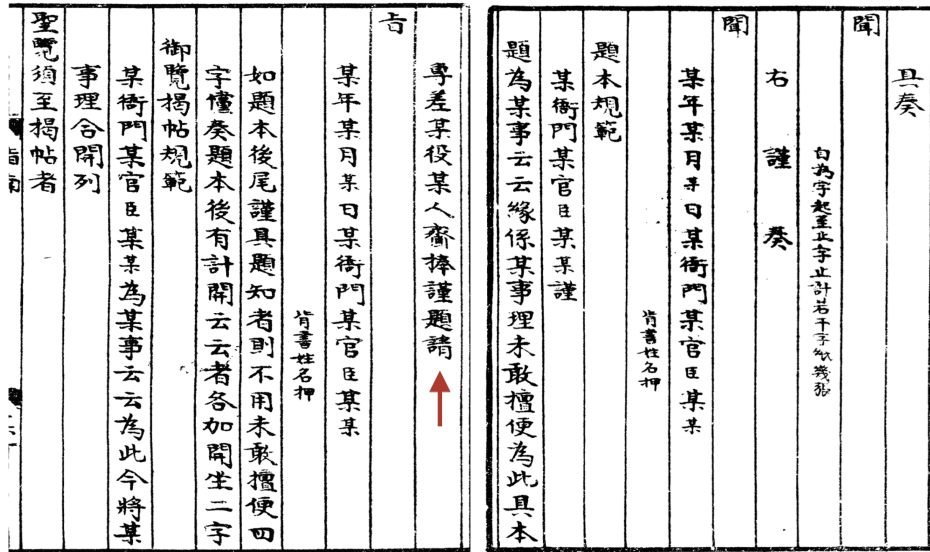 具奏
聞
自為字起至止字止計若干字紙幾張
右謹奏
聞
某年某月某日某衙門某官臣某某
背書姓名押
題本規範
某衙門某官臣某某謹
題為某事云云緣係某事理未敢擅便為此具本
專差某役某人齎捧謹題請
旨
某年某月某日某衙門某官臣某某
背書姓名押
如題本後尾謹具題知者則不用未敢擅便四
字慬奏題本後有計開云云者各加開坐二字
御覽揭帖規範
某衙門某官臣某某為某事云云為此今將某
事理合開列
聖覽須至揭帖者
指南